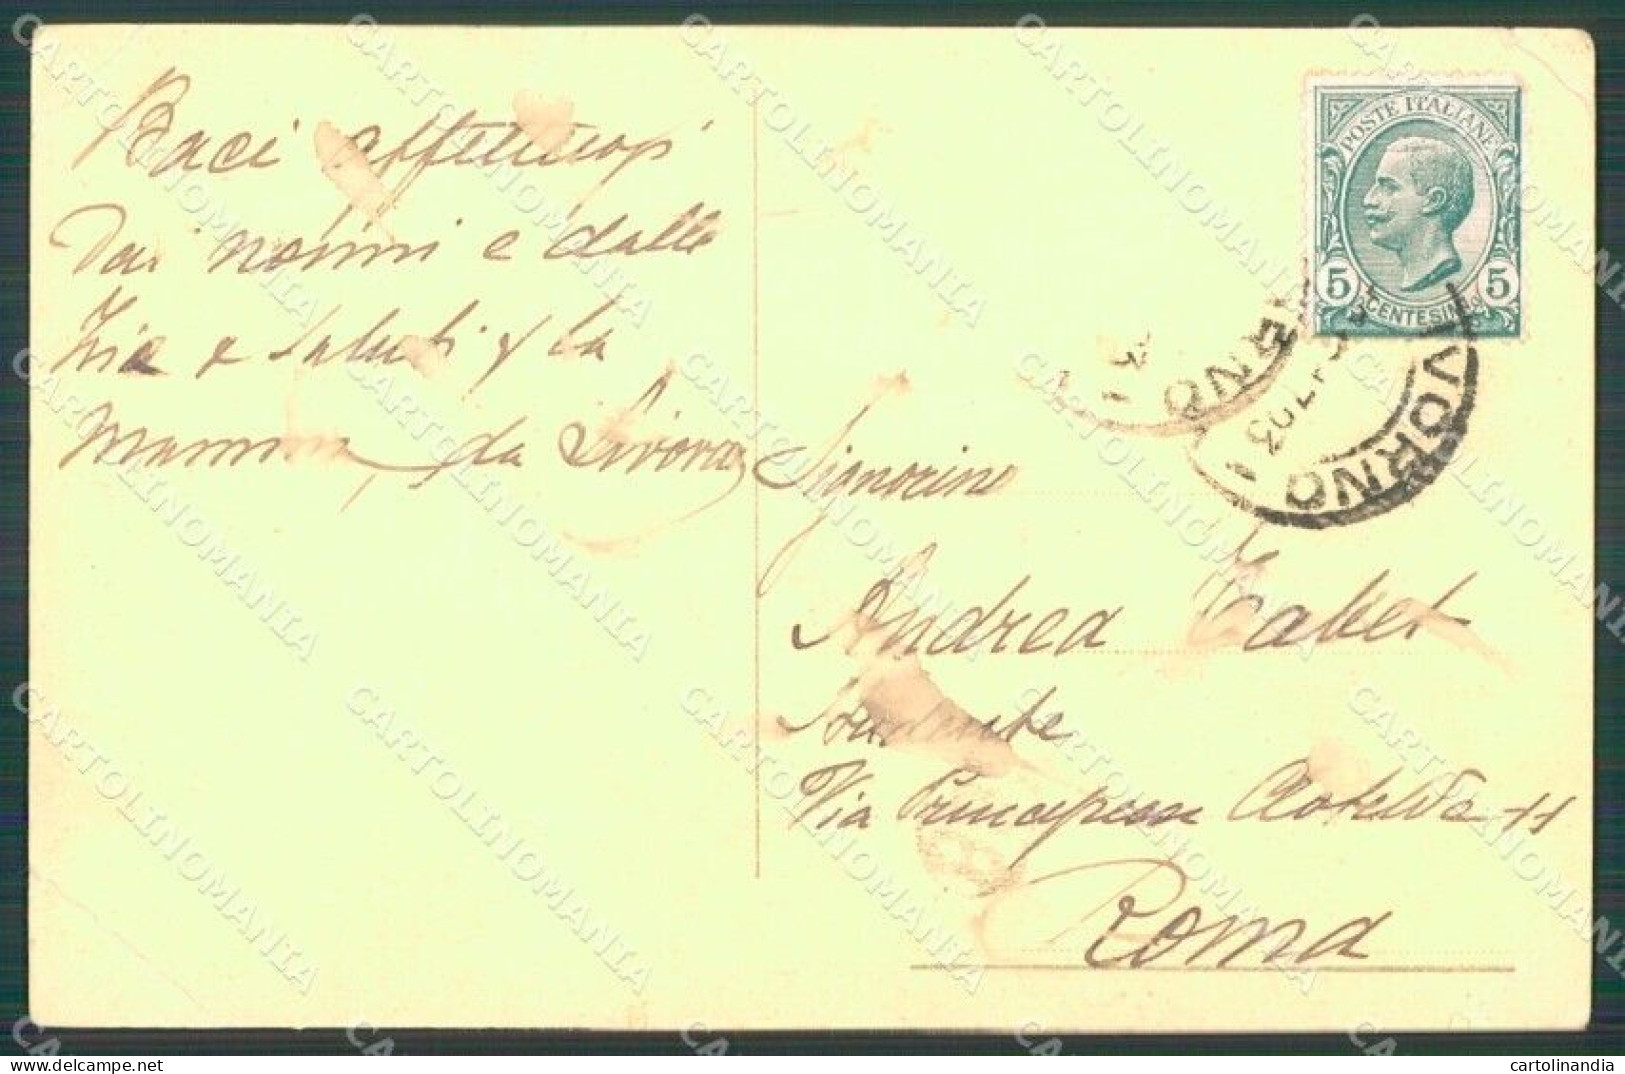 Baci affettuosi
dai nonni e dalla
Zia e saluti x la
Mamma da Livorno
POSTE ITALIANE
5 CENTESIMI 5
LIVORNO
Signorino
Andrea Tabet
Studente
Via Principessa Clotilde 11
Roma
CARTOLINOMANIA
cartolinandia